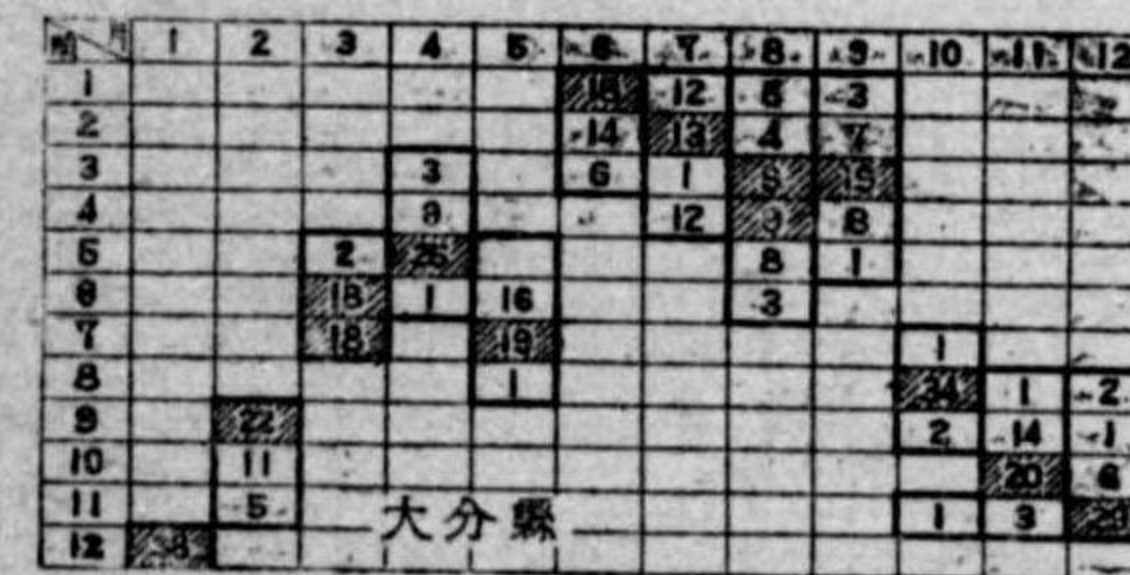 1 2 3 4 5 6 7 8 9 10 11 12
1 18 12 3
2 14 13 4 7
3 3 6 1 19
4 12 8
5 2 8 1
6 18 1 16 3
7 18 19 1
8 1 34 1 2
9 22 2 14 1
10 11 20 6
11 5 1 3 29
大分縣
12 38